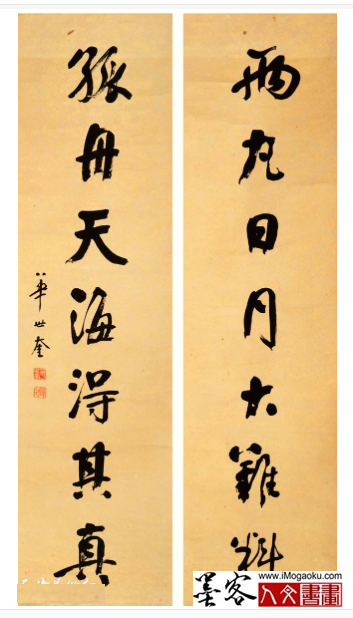 兩丸日月大難料
孤舟天海得其真
華世奎
墨客
www.iMogaoku.com
人文書畫